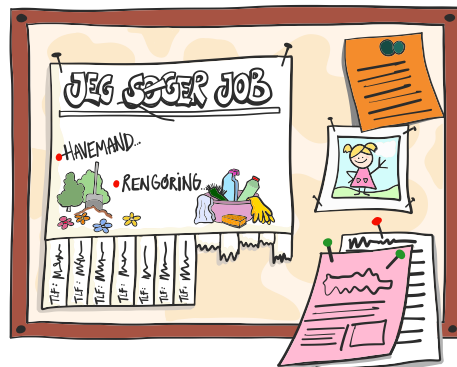 JEG SØGER JOB
HAVEMAND...
RENGØRING...
TLF:
TLF:
TLF:
TLF:
TLF:
TLF:
TLF: